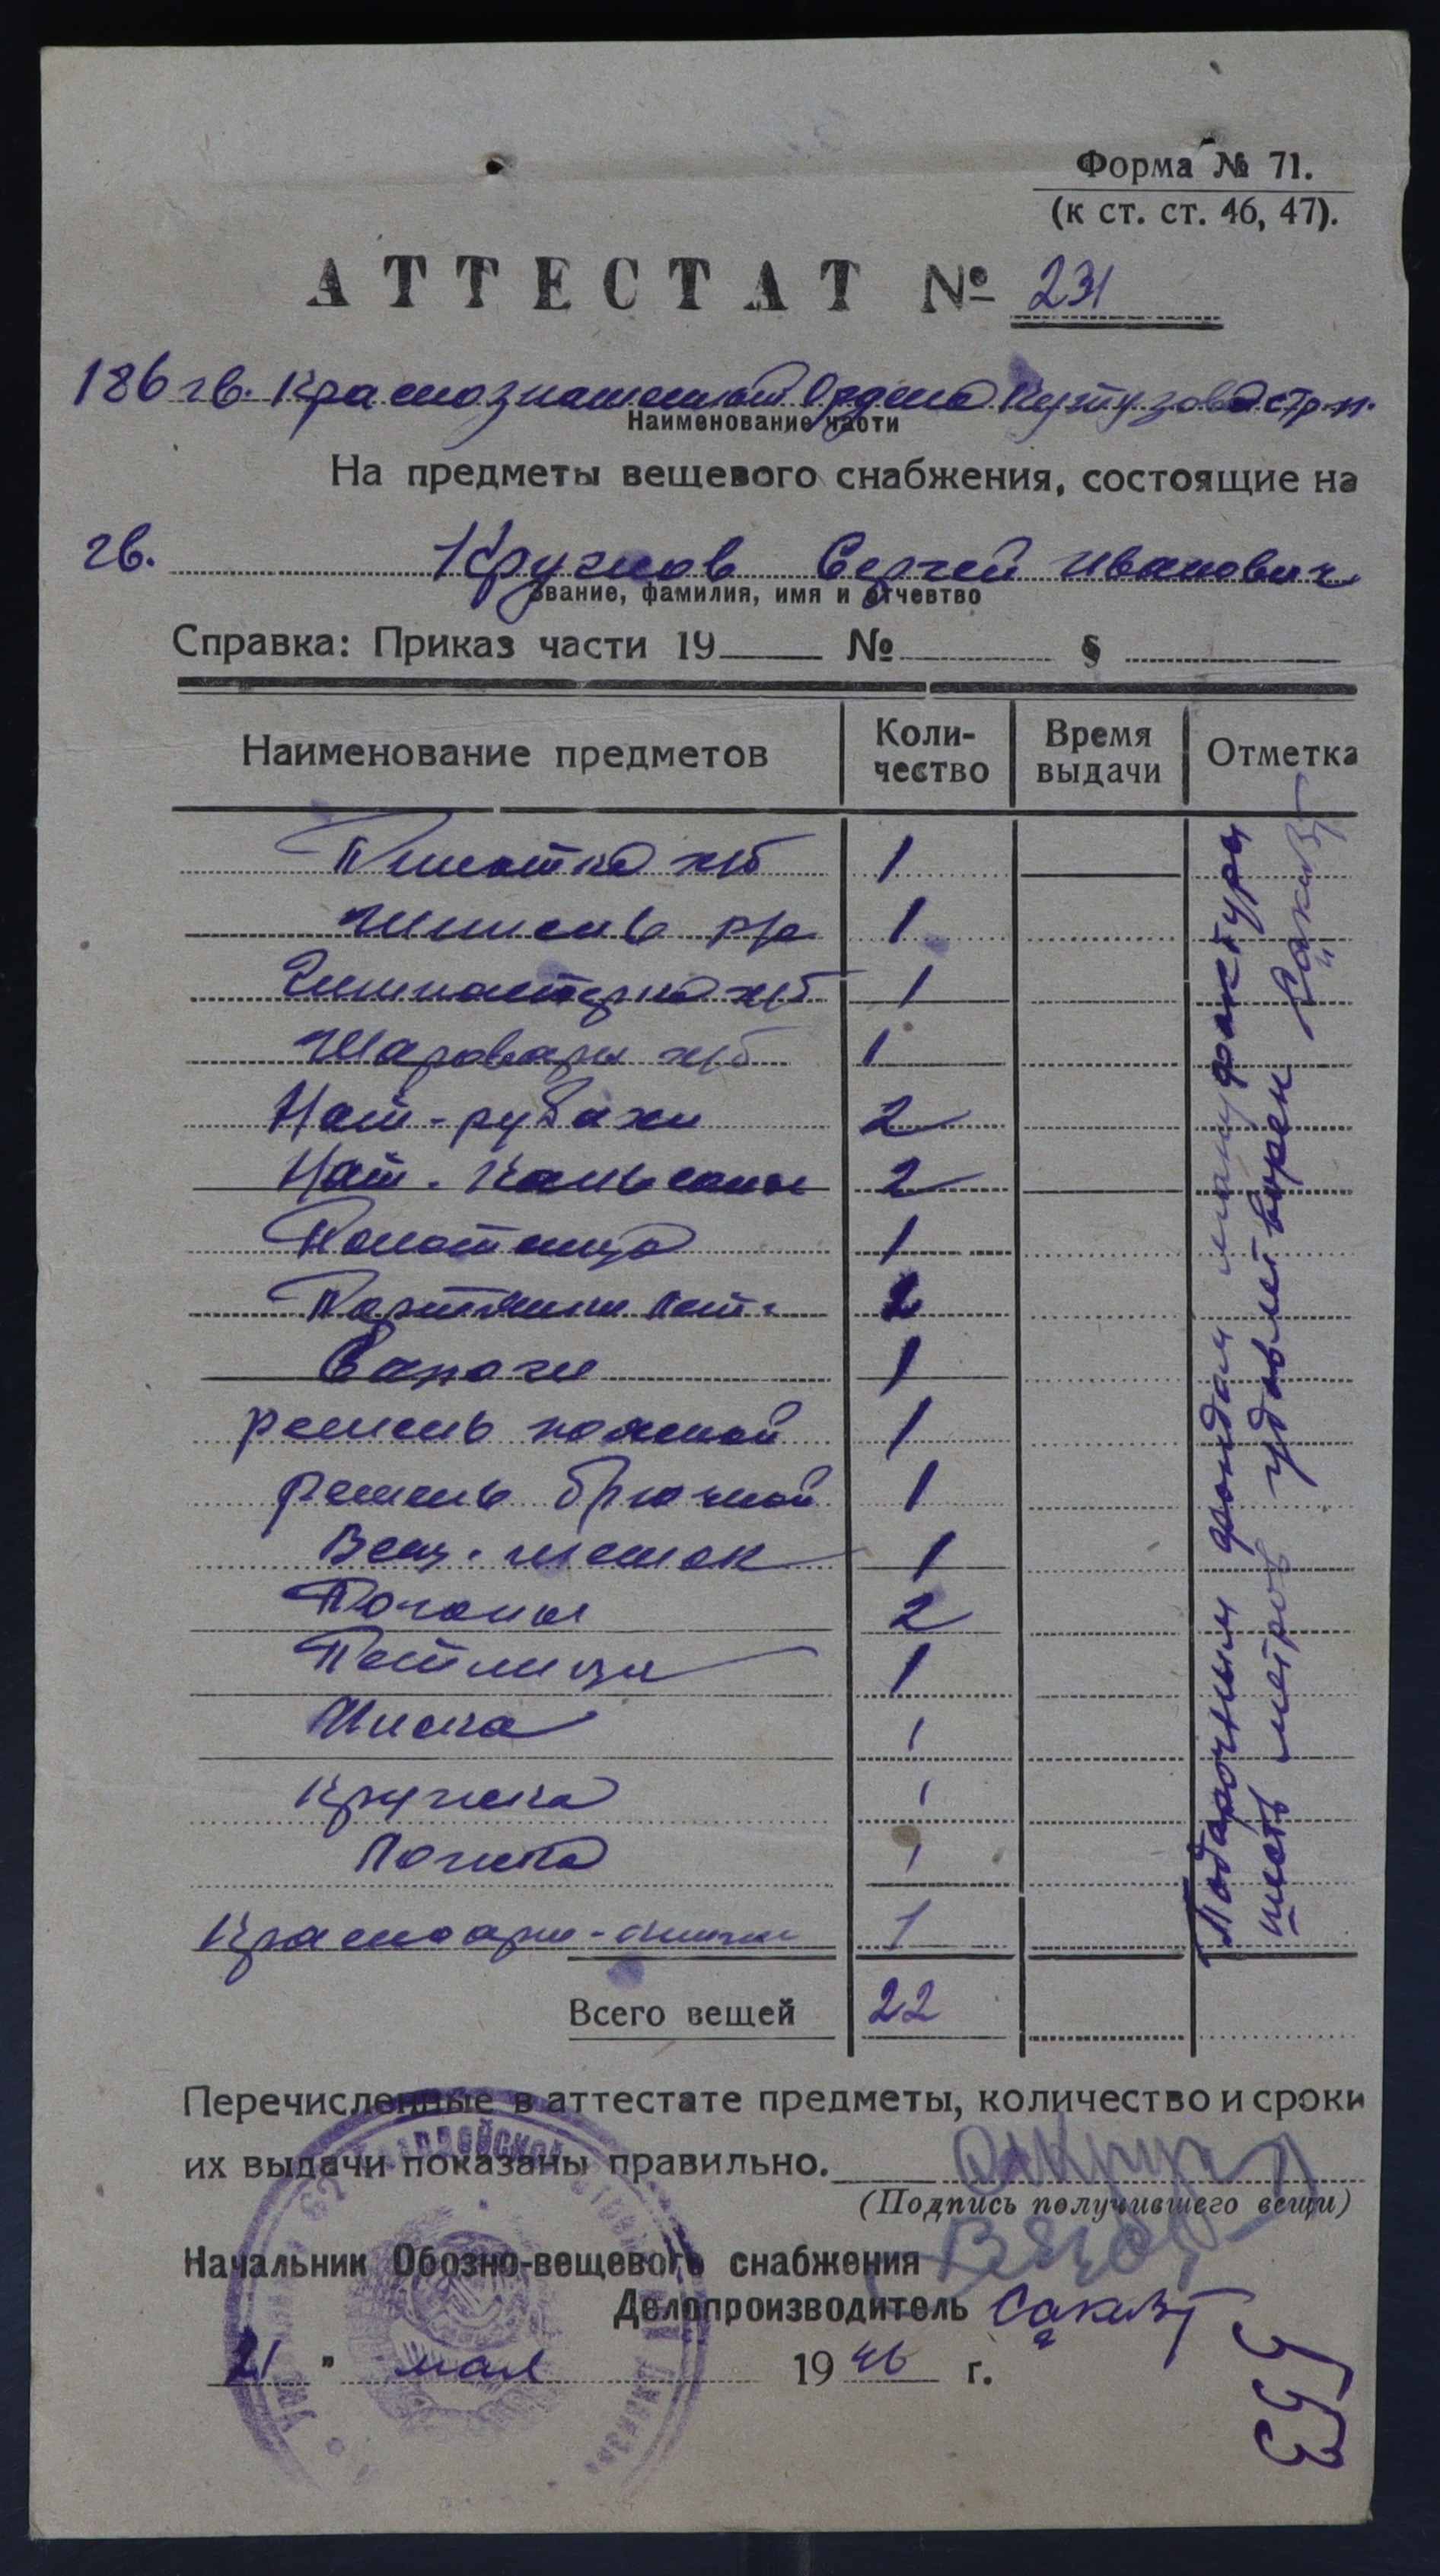 Форма № 71.
(к ст. ст. 46, 47).
АТТЕСТАТ № 231
186 гв. Краснознаменный Ордена Кутузова стр. п.
Наименование части
На предметы вещевого снабжения, состоящие на
гв. Кружков Сергей Иванович
Звание, фамилия, имя и отчевтво
Справка: Приказ части 19 № §
Наименование предметов Коли-чество Время выдачи Отметка
Пилотка х/б 1
Шинель р/с 1
Гимнастерка х/б 1
Шаровары х/б 1
Нат-рубахи 2
Нат. кальсоны 2
Полотенца 1
Портянки лет. 2
Сапоги 1
ремень поясной 1
ремень брючной 1
Вещ. мешок 1
Погоны 2
Петлицы 1
Миска 1
Кружка 1
Ложка 1
Красноарм-книжка 1
Всего вещей 22
Подарочным фондом мануфактуры
шесть метров удовлетворен
Перечисленные в аттестате предметы, количество и сроки
их выдачи показаны правильно.
(Подпись получившего вещи)
Начальник Обозно-вещевого снабжения
Делопроизводитель
21 " мая 1946 г.